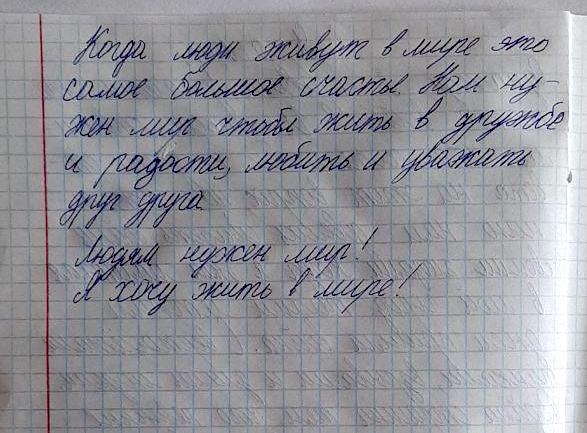 Когда люди живут в мире это
самое большое счастье. Нам ну-
жен мир чтобы жить в дружбе
и радости, любить и уважать
друг друга.
Людям нужен мир!
Я хочу жить в мире!